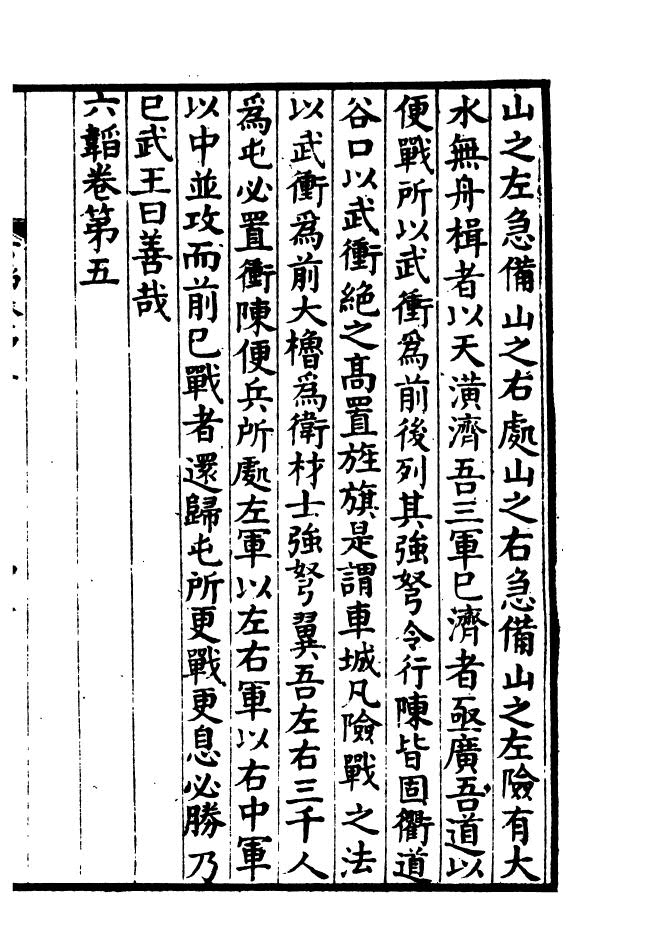 山之左急備山之右處山之右急備山之左險有大
水無舟楫者以天潢濟吾三軍巳濟者亟廣吾道以
便戰所以武衝爲前後列其強弩令行陳皆固衢道
谷口以武衝絶之髙置旌旗是謂車城凡險戰之法
以武衝爲前大櫓爲衛材士強弩翼吾左右三千人
爲屯必置衝陳便兵所處左軍以左右軍以右中軍
以中並攻而前巳戰者還歸屯所更戰更息必勝乃
巳武王曰善哉
六韜卷第五